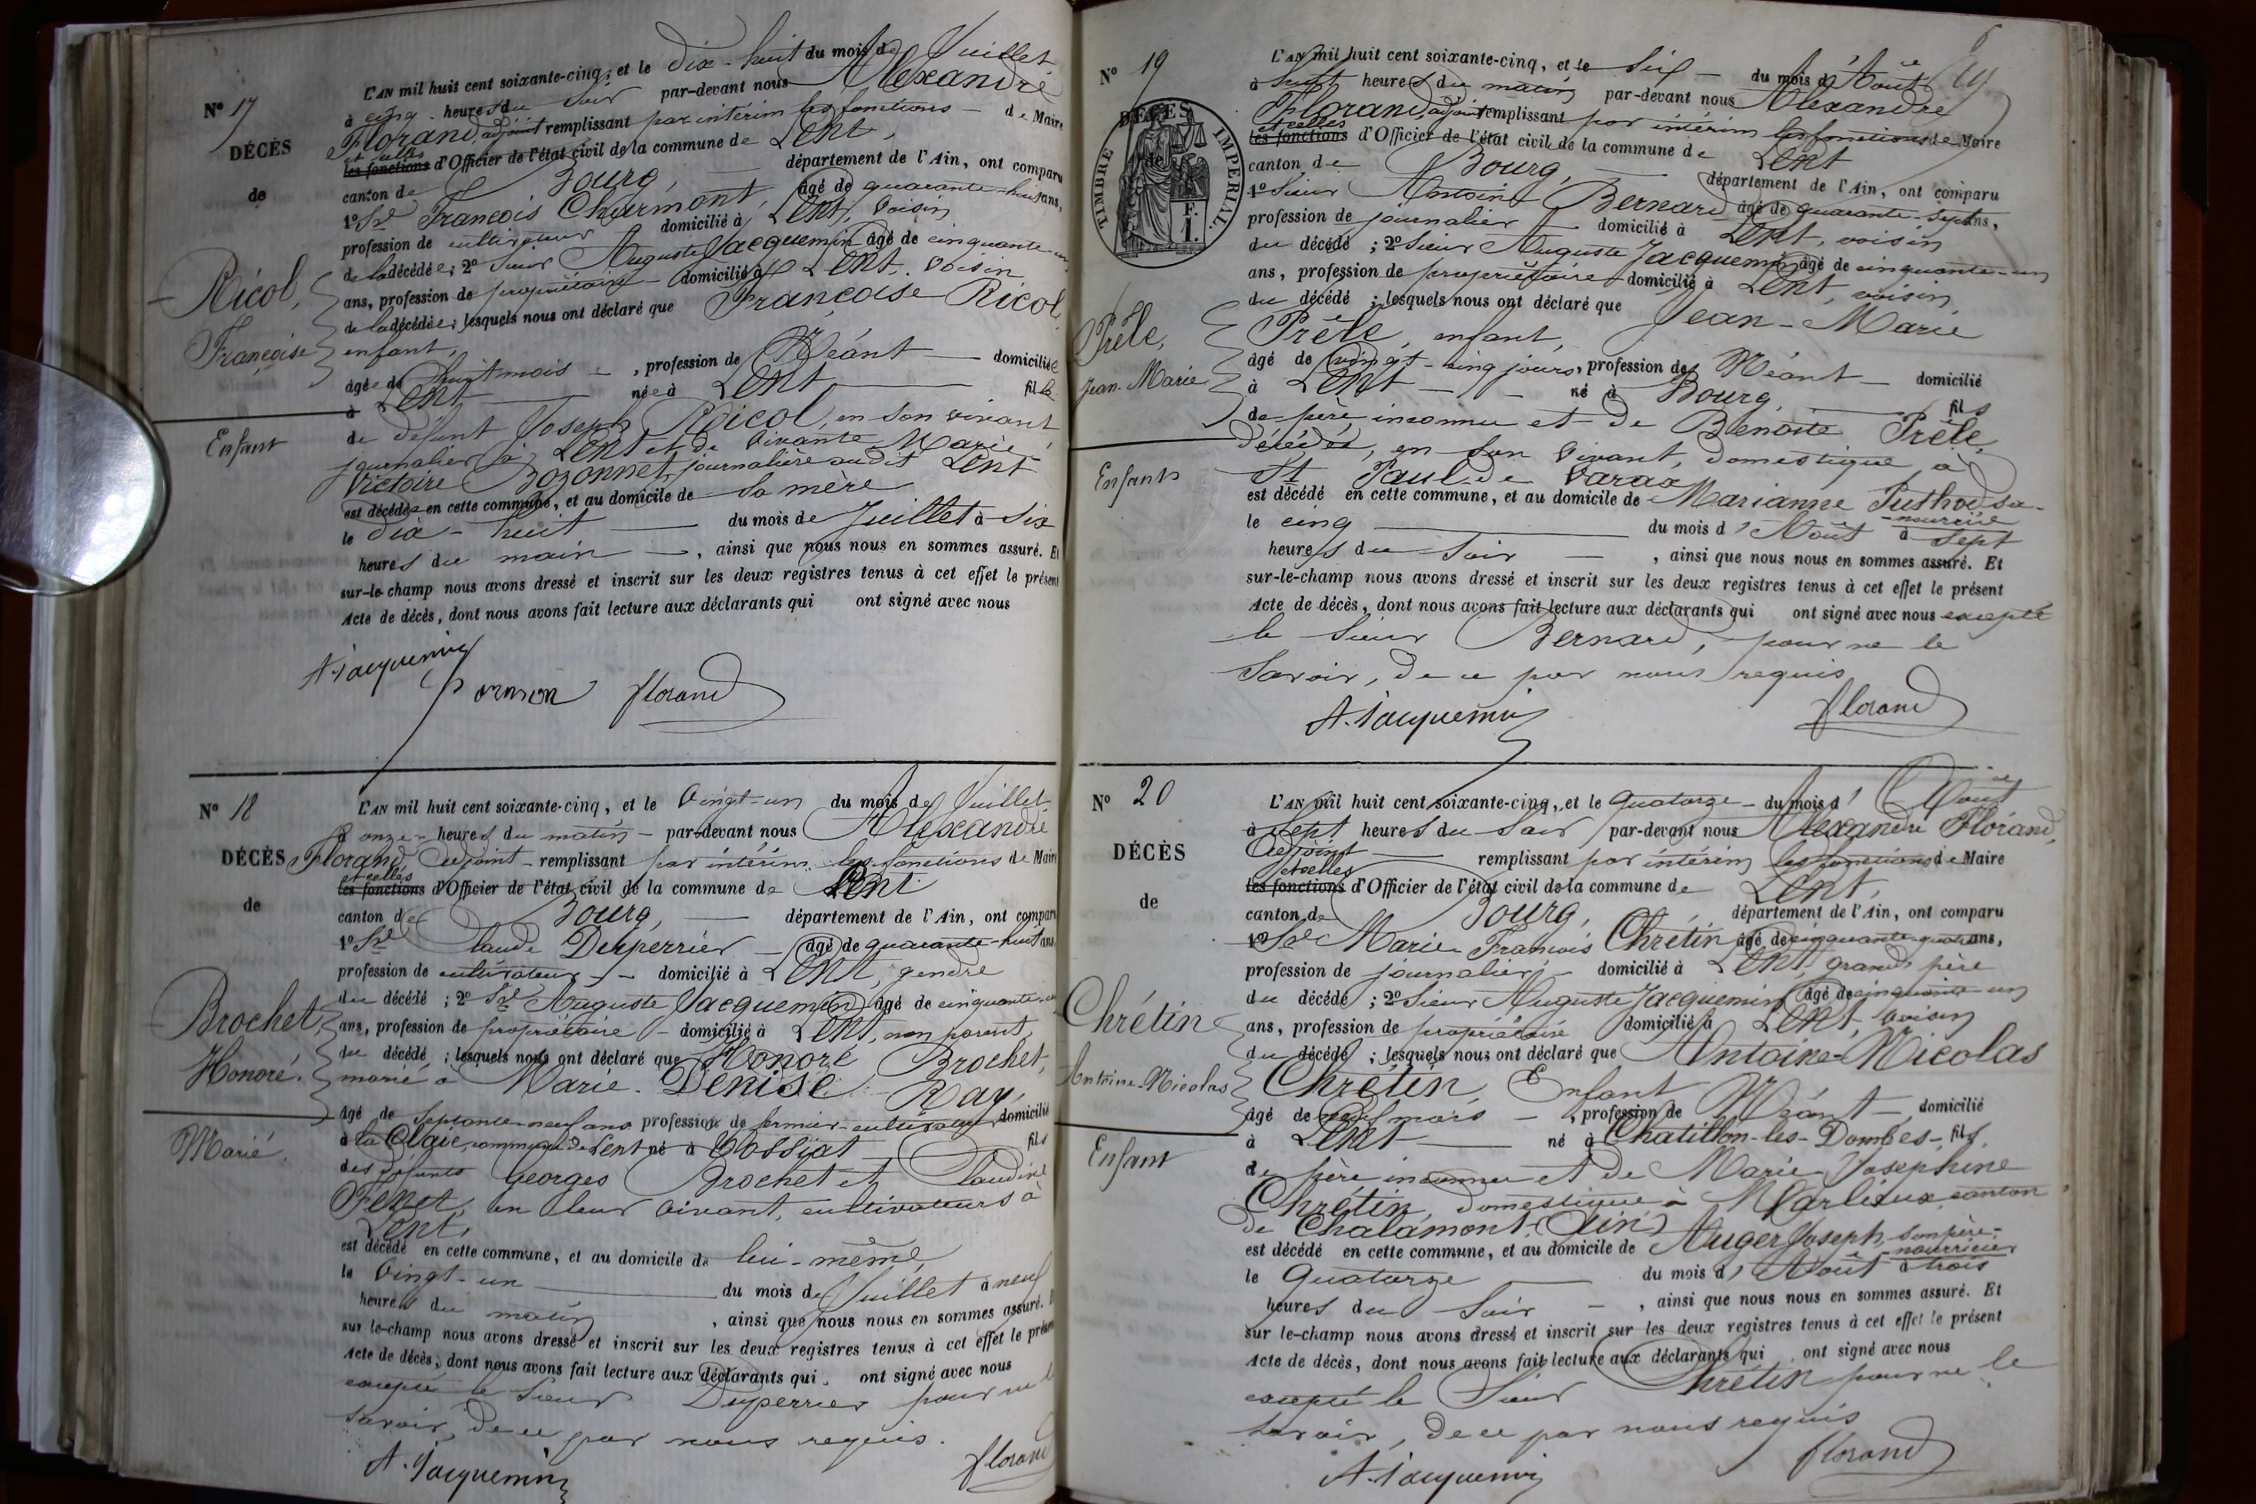 N° 17
DÉCÈS
de
Ricol,
Françoise
Enfant
L'AN mil huit cent soixante-cinq, et le dix-huit du mois de Juillet
à cinq heures du soir par-devant nous Alexandre
Florand, adjoint remplissant par intérim les fonctions de Maire
et celles
les fonctions d'Officier de l'état civil de la commune de Lent,
canton de Bourg, département de l'Ain, ont comparu
1° Sr François Charmont, âgé de quarante-huit ans,
profession de cultivateur domicilié à Lent, voisin
de la décédée; 2° Sieur Auguste Jacquemin âgé de cinquante-un
ans, profession de propriétaire domicilié à Lent, voisin
de la décédée; lesquels nous ont déclaré que Françoise Ricol,
enfant,
âgée de huit mois, profession de Néant domiciliée
à Lent née à Lent fille
de défunt Joseph Ricol, en son vivant
journalier à Lent et de vivante Marie-
Victoire Bozonnet, journalière audit Lent
est décédée en cette commune, et au domicile de sa mère
le dix-huit du mois de Juillet à six
heures du main, ainsi que nous nous en sommes assuré. Et
sur-le-champ nous avons dressé et inscrit sur les deux registres tenus à cet effet le présent
Acte de décès, dont nous avons fait lecture aux déclarants qui ont signé avec nous
A. Jacquemin
florand
N° 18
DÉCÈS
de
Brochet,
Honoré.
Marié.
L'AN mil huit cent soixante-cinq, et le vingt-un du mois de Juillet
à onze heures du matin par-devant nous Alexandre
Florand Adjoint remplissant par intérim les fonctions de Maire
et celles
les fonctions d'Officier de l'état civil de la commune de Lent
canton de Bourg, département de l'Ain, ont comparu
1° Sr Claude Duperrier âgé de quarante-huit ans
profession de cultivateur domicilié à Lent, gendre
du décédé; 2° Sr Auguste Jacquemin âgé de cinquante-un
ans, profession de propriétaire domicilié à Lent, non parent
du décédé; lesquels nous ont déclaré que Honoré Brochet,
marié à Marie-Denise Ray,
âgé de septante-neuf ans profession de fermier-cultivateur domicilié
à la Claie, commune de Lent né à Cossiat fils
des défunts Georges Brochet et Claudine
Fenet, en leur vivant, cultivateurs à
Lent,
est décédé en cette commune, et au domicile de lui-même,
le vingt-un du mois de Juillet à neuf
heures du matin, ainsi que nous nous en sommes assuré. E
sur le-champ nous avons dressé et inscrit sur les deux registres tenus à cet effet le présent
Acte de décès, dont nous avons fait lecture aux déclarants qui ont signé avec nous
excepté le Sieur Duperrier pour ne le
savoir, de ce par nous requis.
A. Jacquemin
florand
N° 19
DÉCÈS
de
TIMBRE IMPERIAL.
F. 1.
Prêle,
Jean-Marie
Enfant
L'AN mil huit cent soixante-cinq, et le six du mois d'Août
à sept heures du matin par-devant nous Alexandre
Florand, adjoint remplissant par intérim les fonctions de Maire
et celles
les fonctions d'Officier de l'état civil de la commune de Lent
canton de Bourg, département de l'Ain, ont comparu
1° Sieur Antoine Bernard âgé de quarante-sept ans,
profession de journalier domicilié à Lent, voisin
du décédé; 2° Sieur Auguste Jacquemin âgé de cinquante-un
ans, profession de propriétaire domicilié à Lent, voisin
du décédé; lesquels nous ont déclaré que Jean-Marie
Prêle, enfant,
âgé de vingt-cinq jours, profession de Néant domicilié
à Lent né à Bourg, fils
de père inconnu et de Benoite Prêle,
décédée, en son vivant, domestique à
St Paul de Varax
est décédé en cette commune, et au domicile de Marianne Puthod sa
nourrice
le cinq du mois d'Août à sept
heures du soir, ainsi que nous nous en sommes assuré. Et
sur-le-champ nous avons dressé et inscrit sur les deux registres tenus à cet effet le présent
Acte de décès, dont nous avons fait lecture aux déclarants qui ont signé avec nous excepté
le Sieur Bernard, pour ne le
savoir, de ce par nous requis
A. Jacquemin
florand
N° 20
DÉCÈS
de
Chrétin
Antoine-Nicolas
Enfant
L'AN mil huit cent soixante-cinq, et le quatorze du mois d'Août
à sept heures du soir par-devant nous Alexandre Florand,
Adjoint remplissant par intérim les fonctions de Maire
et celles
les fonctions d'Officier de l'état civil de la commune de Lent,
canton de Bourg, département de l'Ain, ont comparu
1° Sr Marie François Chrétin âgé de cinquante-quatre ans,
profession de journalier domicilié à Lent, grand père
du décédé; 2° Sieur Auguste Jacquemin âgé de cinquante-un
ans, profession de propriétaire domicilié à Lent, voisin
du décédé; lesquels nous ont déclaré que Antoine-Nicolas
Chrétin, Enfant
âgé de neuf mois, profession de Néant domicilié
à Lent né à Chatillon-les-Dombes fils
de père inconnu et de Marie-Josephine
Chrétin, domestique à Marlieux canton
de Chalamont (Ain)
est décédé en cette commune, et au domicile de Auger Joseph, son père-
nourricier
le quatorze du mois d'Août à trois
heures du soir, ainsi que nous nous en sommes assuré. Et
sur le-champ nous avons dressé et inscrit sur les deux registres tenus à cet effet le présent
Acte de décès, dont nous avons fait lecture aux déclarants qui ont signé avec nous
excepté le Sieur Chrétin pour ne le
savoir, de ce par nous requis
A. Jacquemin
florand